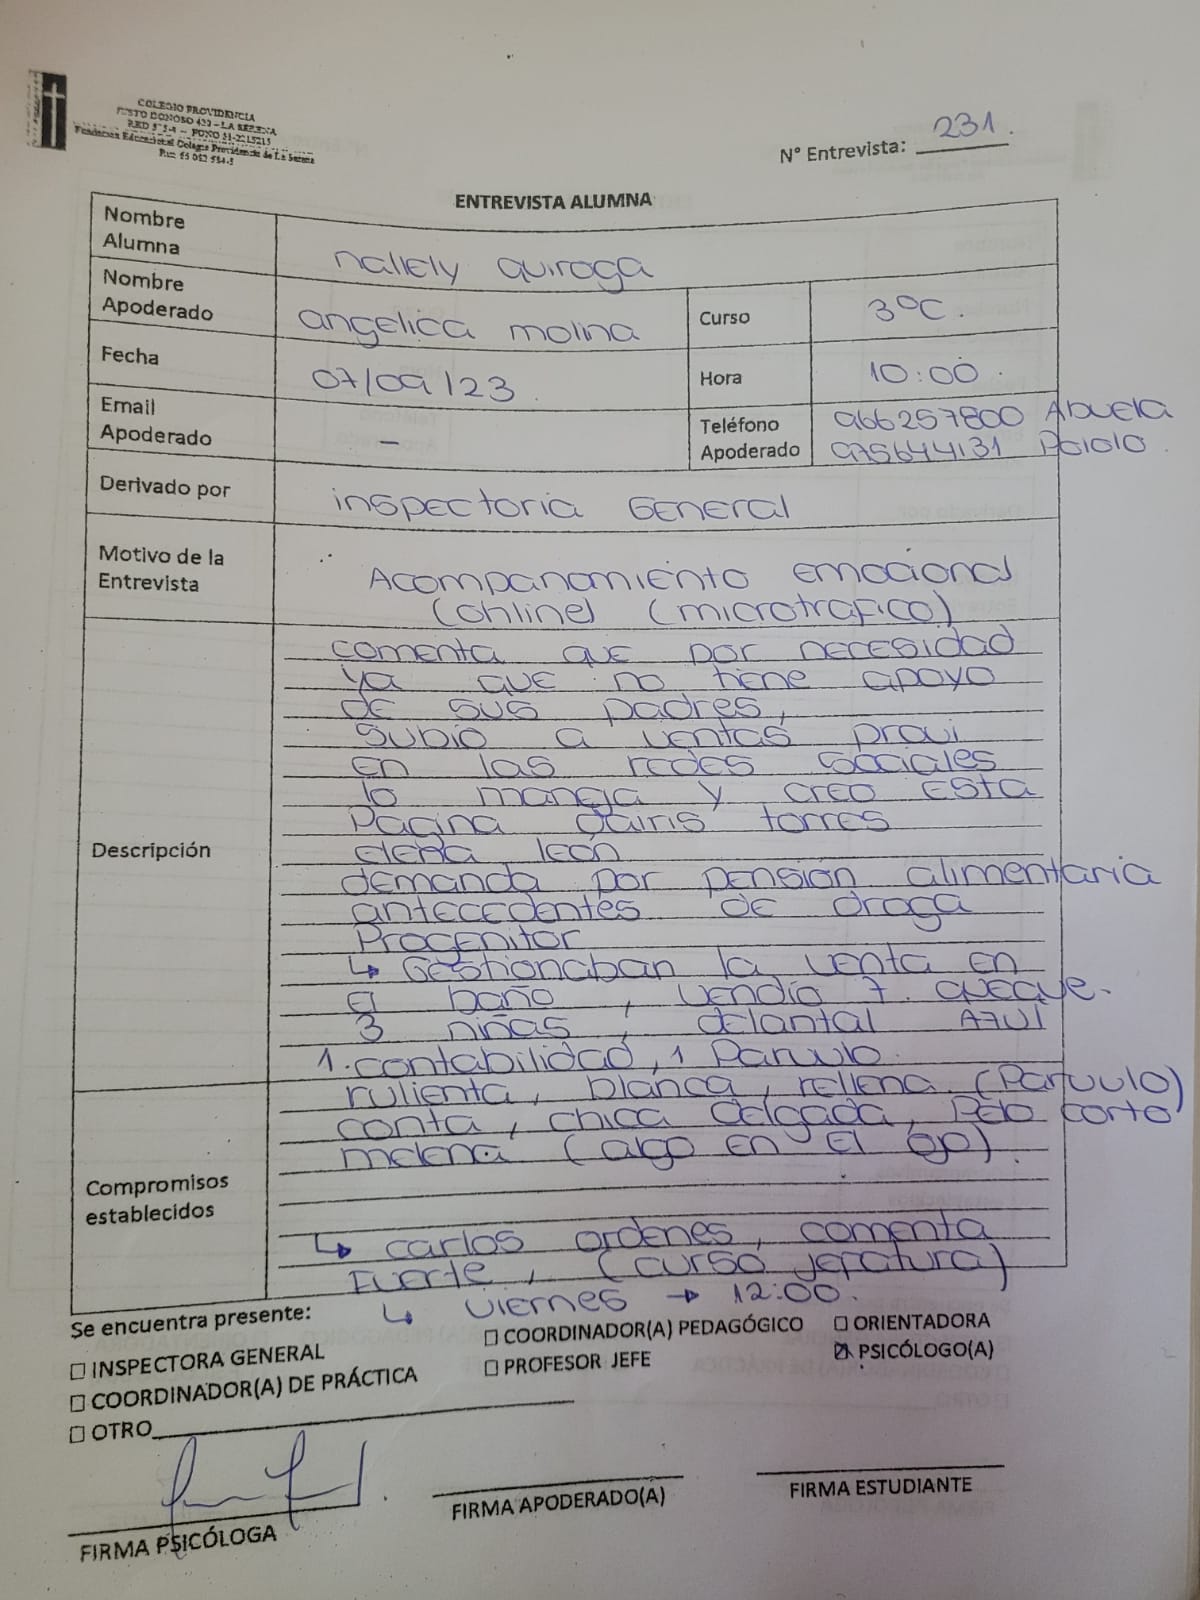 COLEGIO PROVIDENCIA
JUSTO DONOSO 420 - LA SERENA
Fundación Educacional Colegio Providencia de La Serena
N° Entrevista: 231.
ENTREVISTA ALUMNA
Nombre Alumna nallely quiroga
Nombre Apoderado angelica molina Curso 3°C.
Fecha 07/09/23. Hora 10:00.
Email Apoderado - Teléfono Apoderado 966257800 Abuela
975644131 Pololo.
Derivado por inspectoria General
Motivo de la Entrevista Acompanamiento emocional
(online) (microtrafico)
Descripción
comenta que por necesidad
ya que no tiene apoyo
de sus padres,
subio a ventas provi
en las redes sociales
lo maneja y creo esta
Pagina dairis torres
elena león
demanda por pensión alimentaria
antecedentes de droga
Progenitor
↳ Gestionaban la venta en
el baño, vendio 7. queque.
3 niñas, delantal Azul
1. contabilidad, 1 Parvulo.
Compromisos establecidos
rulienta, blanca, rellena. (Parvulo)
conta, chica delgada, Pelo corto
melena (algo en el ojo).
↳ carlos ordenes, comenta
Fuerte, (curso jefatura)
↳ viernes → 12:00.
Se encuentra presente:
☐ INSPECTORA GENERAL ☐ COORDINADOR(A) PEDAGÓGICO ☐ ORIENTADORA
☐ COORDINADOR(A) DE PRÁCTICA ☐ PROFESOR JEFE ☒ PSICÓLOGO(A)
☐ OTRO
FIRMA PSICÓLOGA FIRMA APODERADO(A) FIRMA ESTUDIANTE